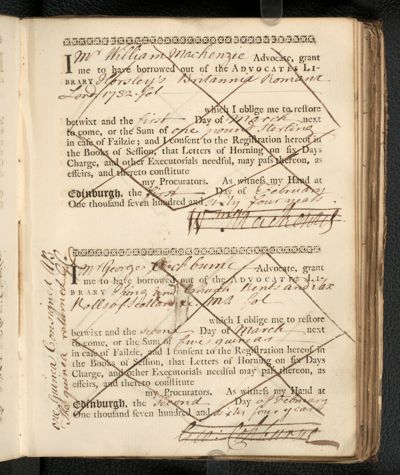 I Mr William Mackenzie Advocate, grant
me to have borrowed out of the ADVOCATES LI-
BRARY Horsley's Britannia Romana
Lond 1732. fol
which I oblige me to restore
betwixt and the first Day of March next
to come, or the Sum of one pound Sterling
in case of Failzie; and I consent to the Registration hereof in
the Books of Session, that Letters of Horning on six Days
Charge, and other Executorials needful, may pass thereon, as
effeirs, and thereto constitute
my Procurators. As witness my Hand at
Edinburgh, the first Day of February
One thousand seven hundred and sixty four years.
Wm Mackenzie
I Mr George Cockburne Advocate, grant
me to have borrowed out of the ADVOCATES LI-
BRARY Church Rent and
Rolls of Scotland MS fol
which I oblige me to restore
betwixt and the second Day of March next
to come, or the Sum of five guineas
in case of Failzie, and I consent to the Registration hereof in
the Books of Session, that Letters of Horning on six Days
Charge, and other Executorials needful may pass thereon, as
effeirs, and thereto constitute
my Procurators. As witness my Hand at
Edinburgh, the second Day of February
One thousand seven hundred and sixty four years
Geo: Cockburne
one guinea Consigned
the guinea returned